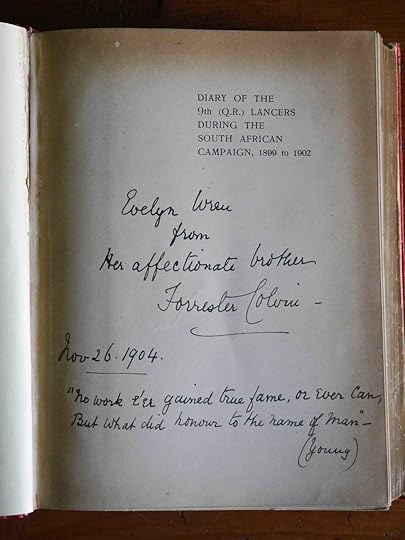 DIARY OF THE
9th (Q.R.) LANCERS
DURING THE
SOUTH AFRICAN
CAMPAIGN, 1899 to 1902
Evelyn Wren
from
Her affectionate brother
Forrester Colvin –
Nov 26. 1904.
"No work e'er gained true fame, or ever can,
But what did honour to the name of Man" –
(Young)